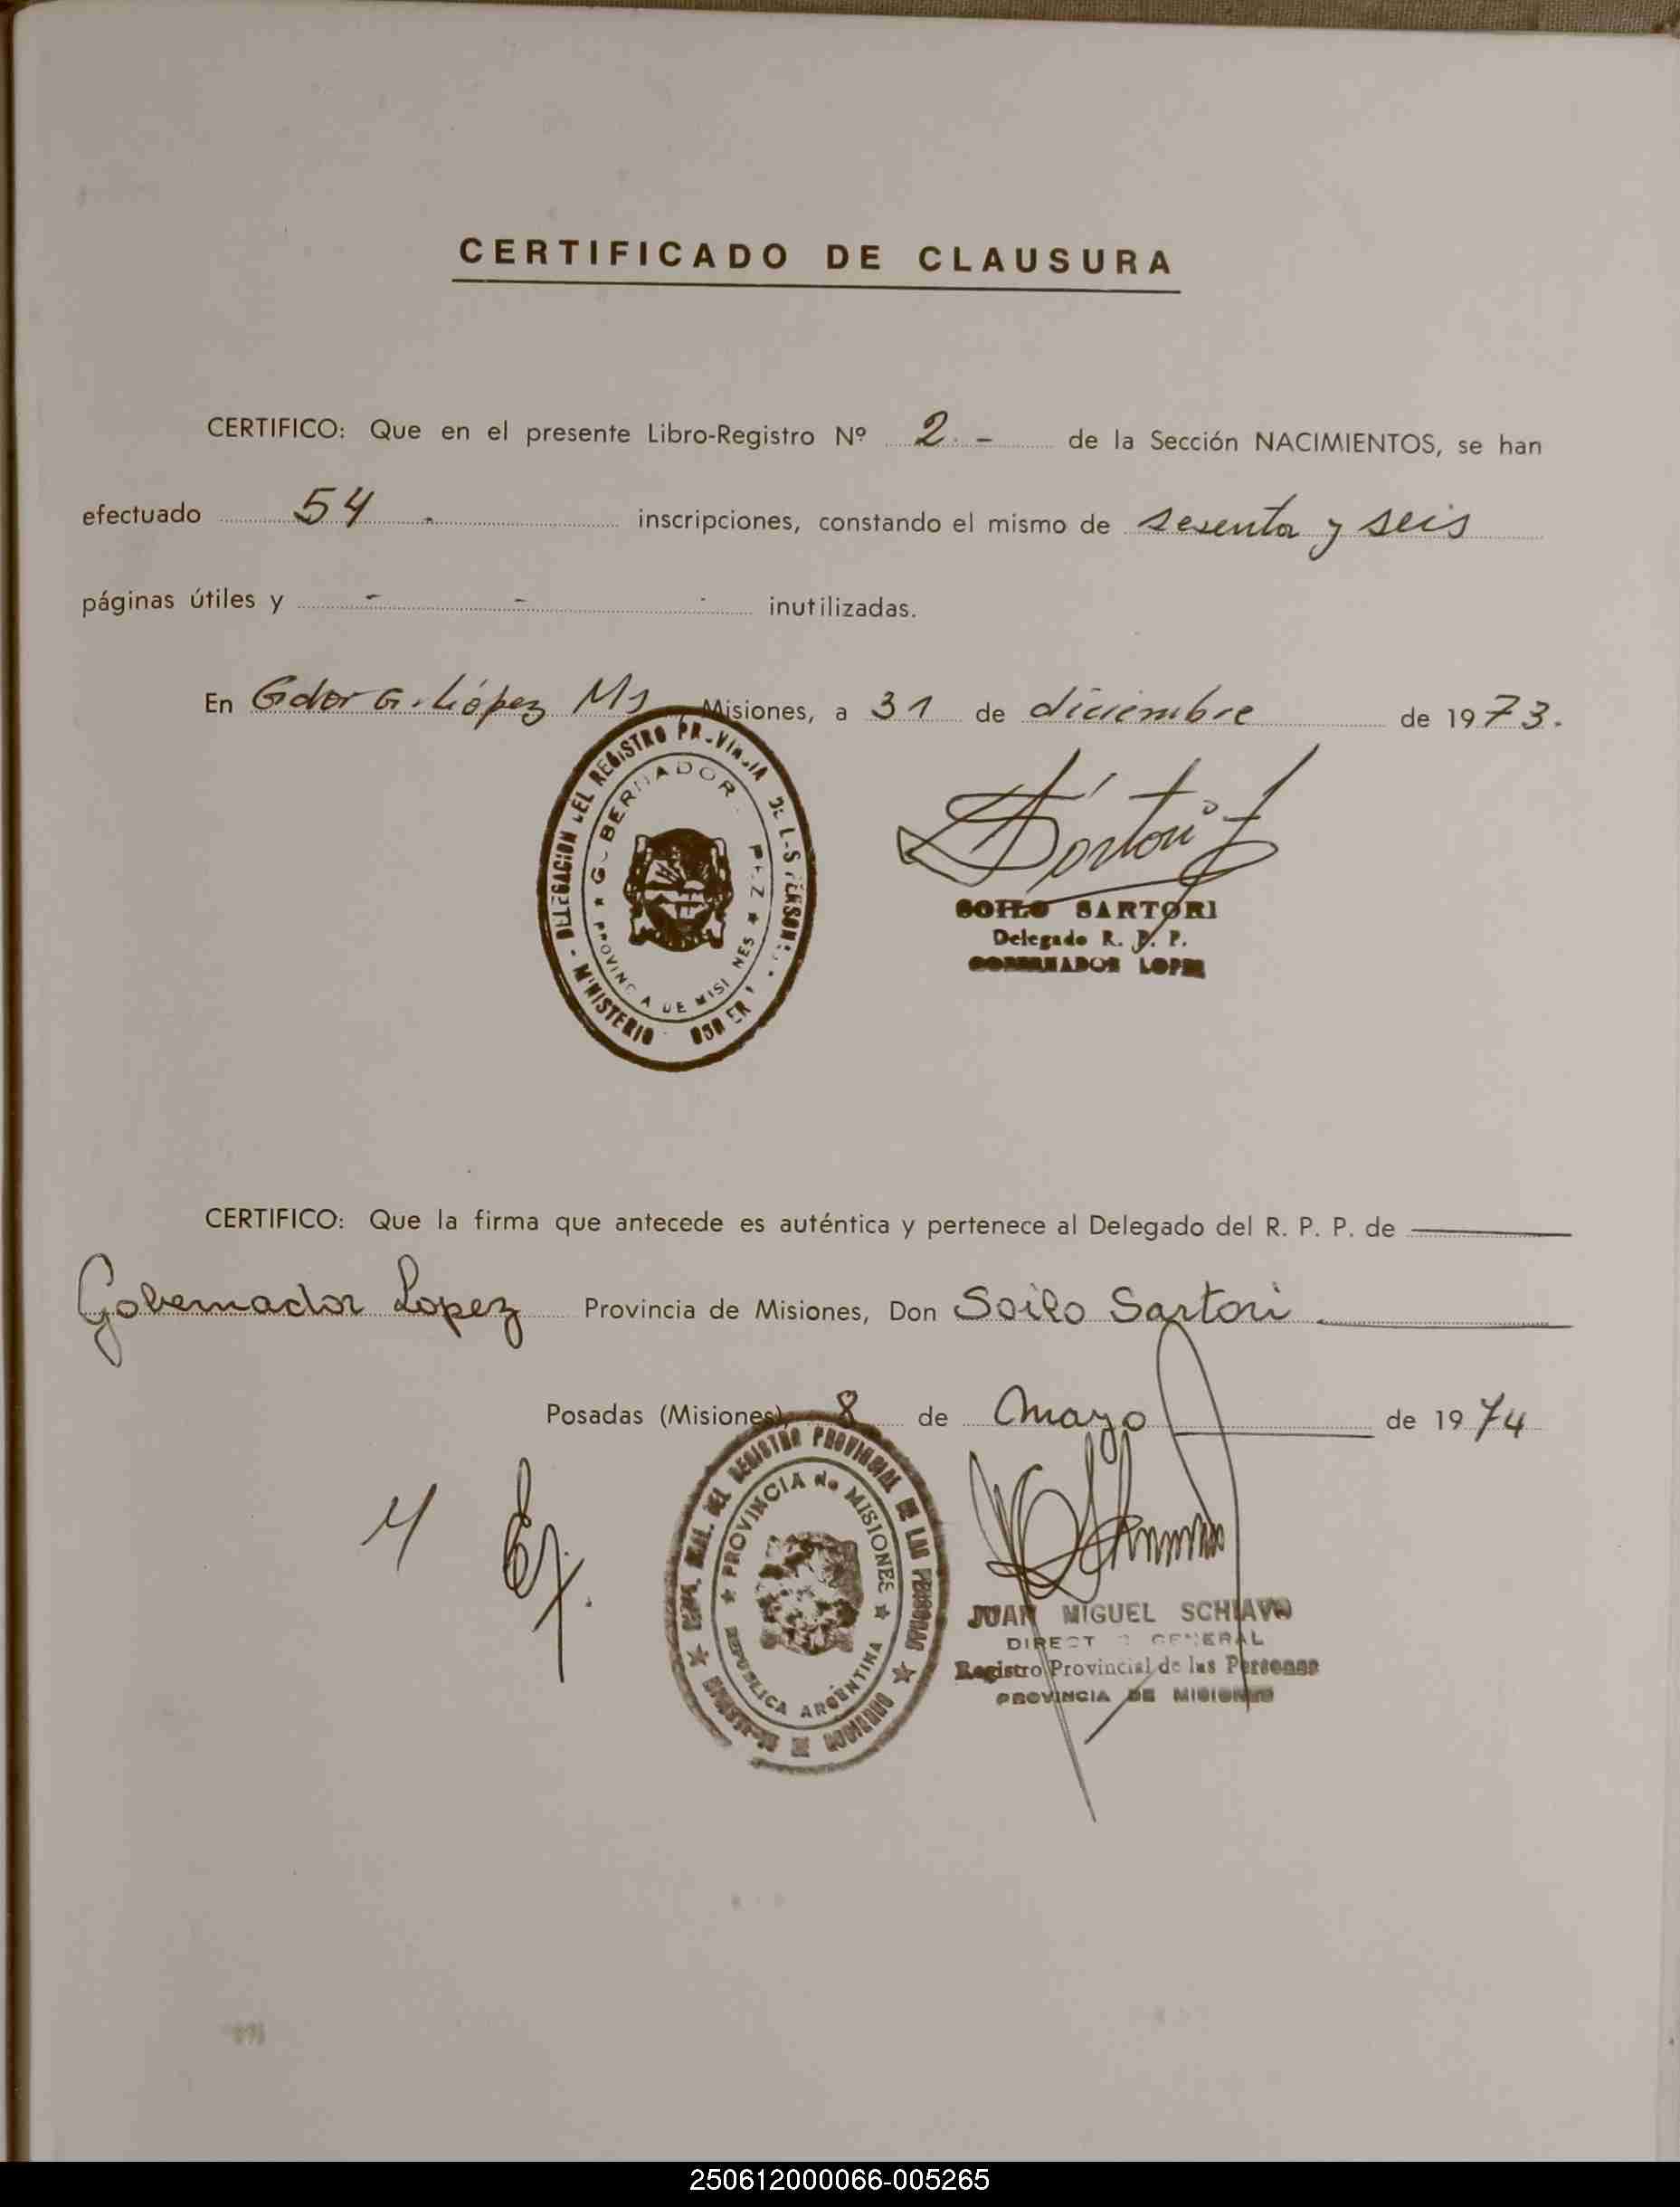 CERTIFICADO DE CLAUSURA
CERTIFICO: Que en el presente Libro-Registro Nº 2.- de la Sección NACIMIENTOS, se han
efectuado 54.- inscripciones, constando el mismo de sesenta y seis
páginas útiles y - - - inutilizadas.
En Gdor G. López Ms, Misiones, a 31 de diciembre de 1973.
DELEGACION DEL REGISTRO PROVINCIAL DE LAS PERSONAS - MINISTERIO
GOBERNADOR LOPEZ ★ PROVINCIA DE MISIONES ★
Sartori
SOILO SARTORI
Delegado R. P. P.
GOBERNADOR LOPEZ
CERTIFICO: Que la firma que antecede es auténtica y pertenece al Delegado del R. P. P. de
Gobernador Lopez Provincia de Misiones, Don Soilo Sartori
Posadas (Misiones), 8 de mayo de 1974
GRAL. DEL REGISTRO PROVINCIAL DE LAS PERSONAS ★ MINISTERIO DE GOBIERNO ★
★ PROVINCIA de MISIONES ★ REPUBLICA ARGENTINA
JUAN MIGUEL SCHIAVO
DIRECTOR GENERAL
Registro Provincial de las Personas
PROVINCIA DE MISIONES
250612000066-005265